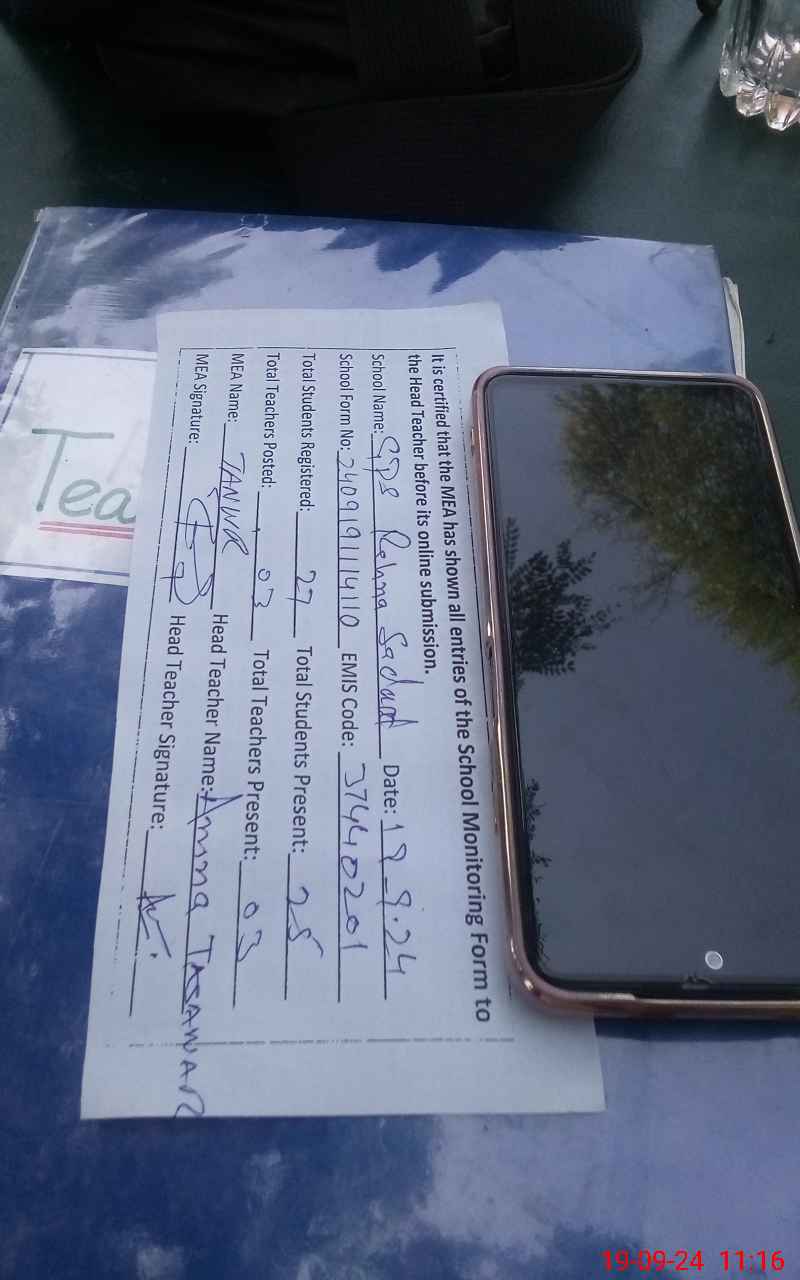 It is certified that the MEA has shown all entries of the School Monitoring Form to
the Head Teacher before its online submission.
School Name: GPS Rehna Sadaat Date: 19.9.24
School Form No: 2409191114110 EMIS Code: 37440201
Total Students Registered: 27 Total Students Present: 25
Total Teachers Posted: 03 Total Teachers Present: 03
MEA Name: TANVIR Head Teacher Name: Amina TASAWAR
MEA Signature: Head Teacher Signature:
Tea
19-09-24 11:16